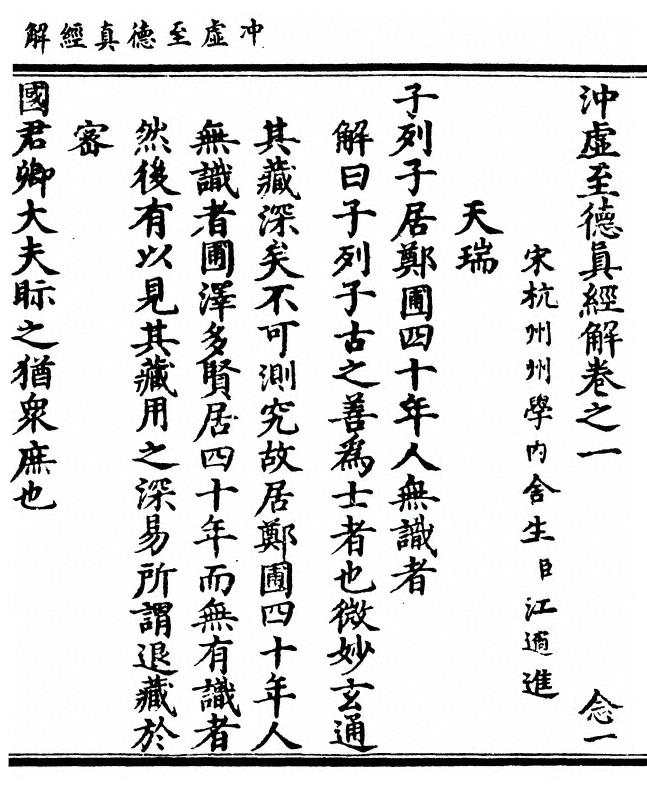 冲虛至德真經解
沖虛至德眞經解卷之一　念一
宋杭州州學内舍生臣江遹進
天瑞
子列子居鄭圃四十年人無識者
解曰子列子古之善爲士者也微妙玄通
其藏深矣不可測究故居鄭圃四十年人
無識者圃澤多賢居四十年而無有識者
然後有以見其藏用之深易所謂退藏於
宻
國君卿大夫眎之猶衆庶也